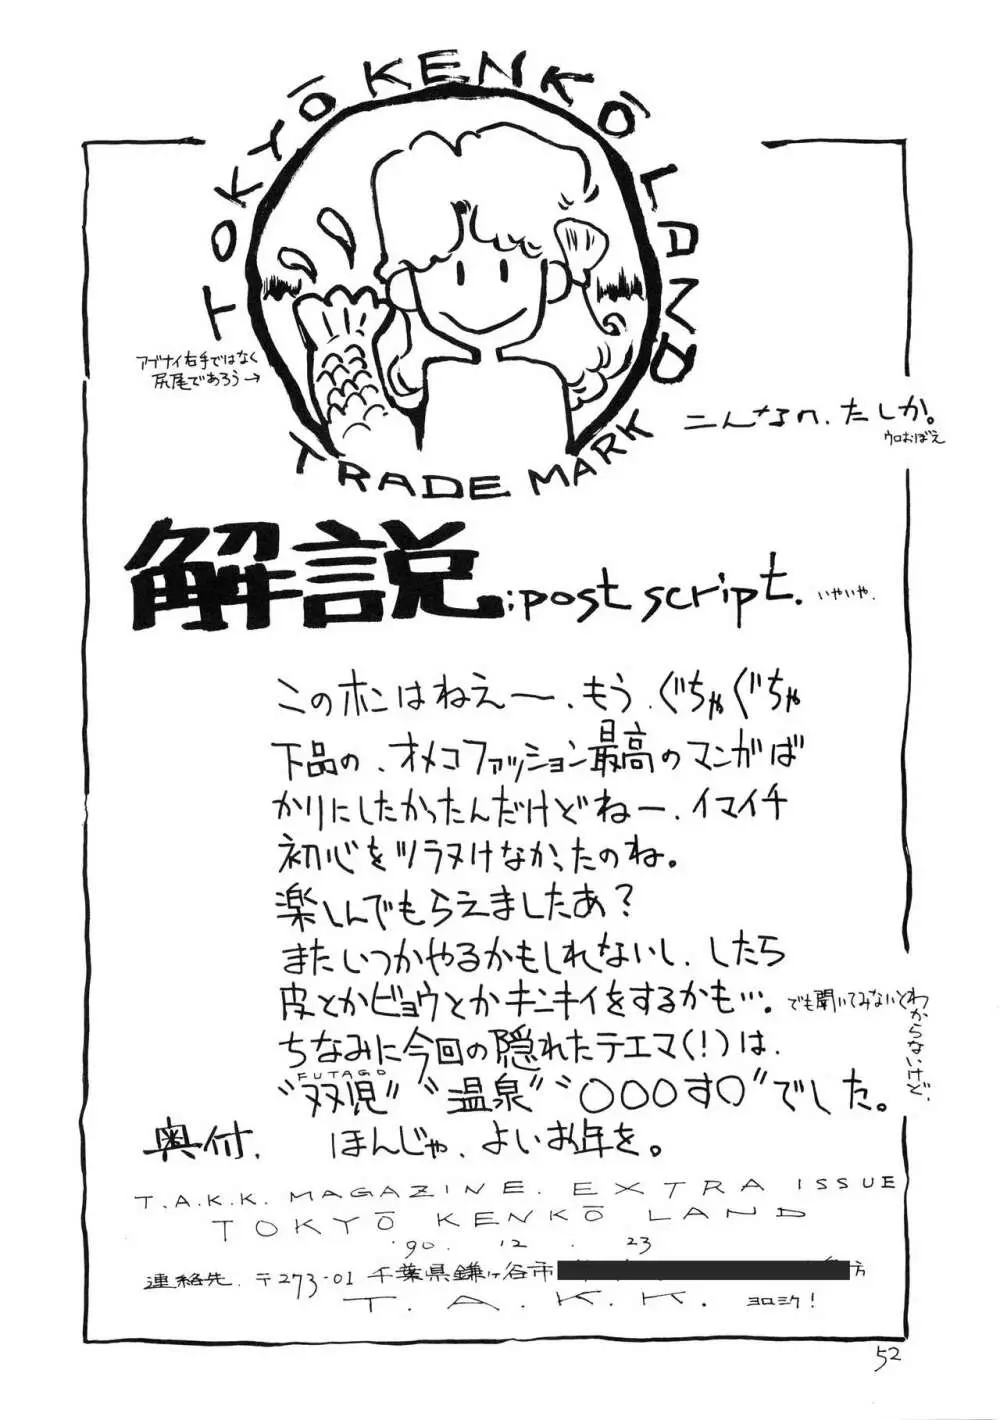 TOKYŌ KENKŌ LAND
アブナイ右手ではなく
尻尾であろう→
TRADE MARK
こんなの、たしか。
ウロおぼえ
解説;post script.
いやいや.
このホンはねえ〜、もう、ぐちゃぐちゃ
下品の、オメコファッション最高のマンガば
かりにしたかったんだけどねー、イマイチ
初心をツラヌけなかったのね。
楽しんでもらえましたあ?
またいつかやるかもしれないし、したら
皮とかビョウとかキンキイをするかも…。
でも聞いてみないとわからないけど、
ちなみに今回の隠れたテエマ(!)は、
FUTAGO
"双児" "温泉" "〇〇〇す〇"でした。
奥付.
ほんじゃ、よいお年を。
T.A.K.K. MAGAZINE. EXTRA ISSUE
TOKYŌ KENKŌ LAND
'90. 12. 23
連絡先.〒273-01 千葉県鎌ヶ谷市
方
T.A.K.K. ヨロシク!
52